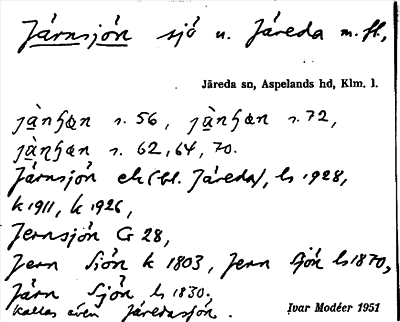 Järnsjön sjö u. Järeda m. fl.,
Järeda sn, Aspelands hd, Klm. l.
s. 56, s. 72,
s. 62, 64, 70.
Järnsjön ek (bl. Järeda), ls 1928,
k 1911, k 1926,
Jernsjön G 28,
Jern Siön k 1803, Jern Sjön ls 1870,
Järn Sjön ls 1830,
Kallas även Järedasjön.
Ivar Modéer 1951